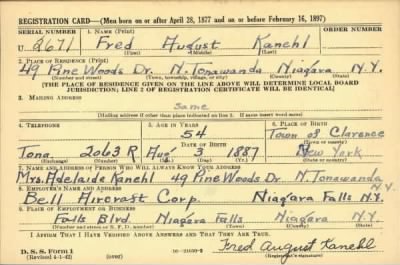 REGISTRATION CARD—(Men born on or after April 28, 1877 and on or before February 16, 1897)
SERIAL NUMBER 1. NAME (Print) ORDER NUMBER
U 2671 Fred August Kanehl
(First) (Middle) (Last)
2. PLACE OF RESIDENCE (Print)
49 Pine Woods Dr. N. Tonawanda Niagara N.Y.
(Number and street) (Town, township, village, or city) (County) (State)
[THE PLACE OF RESIDENCE GIVEN ON THE LINE ABOVE WILL DETERMINE LOCAL BOARD
JURISDICTION; LINE 2 OF REGISTRATION CERTIFICATE WILL BE IDENTICAL]
3. MAILING ADDRESS
Same
(Mailing address if other than place indicated on line 2. If same insert word same)
4. TELEPHONE 5. AGE IN YEARS 6. PLACE OF BIRTH
54 Town of Clarence
DATE OF BIRTH (Town or county)
Tona 2063 R Aug 3 1887 New York
(Exchange) (Number) (Mo.) (Day) (Yr.) (State or country)
7. NAME AND ADDRESS OF PERSON WHO WILL ALWAYS KNOW YOUR ADDRESS
Mrs. Adelaide Kanehl 49 Pine Woods Dr. N. Tonawanda N.Y.
8. EMPLOYER'S NAME AND ADDRESS
Bell Aircraft Corp. Niagara Falls N.Y.
9. PLACE OF EMPLOYMENT OR BUSINESS
Falls Blvd. Niagara Falls Niagara N.Y.
(Number and street or R. F. D. number) (Town) (County) (State)
I AFFIRM THAT I HAVE VERIFIED ABOVE ANSWERS AND THAT THEY ARE TRUE.
D. S. S. Form 1
(Revised 4-1-42) (over) 16—21630-2 Fred August Kanehl
(Registrant's signature)